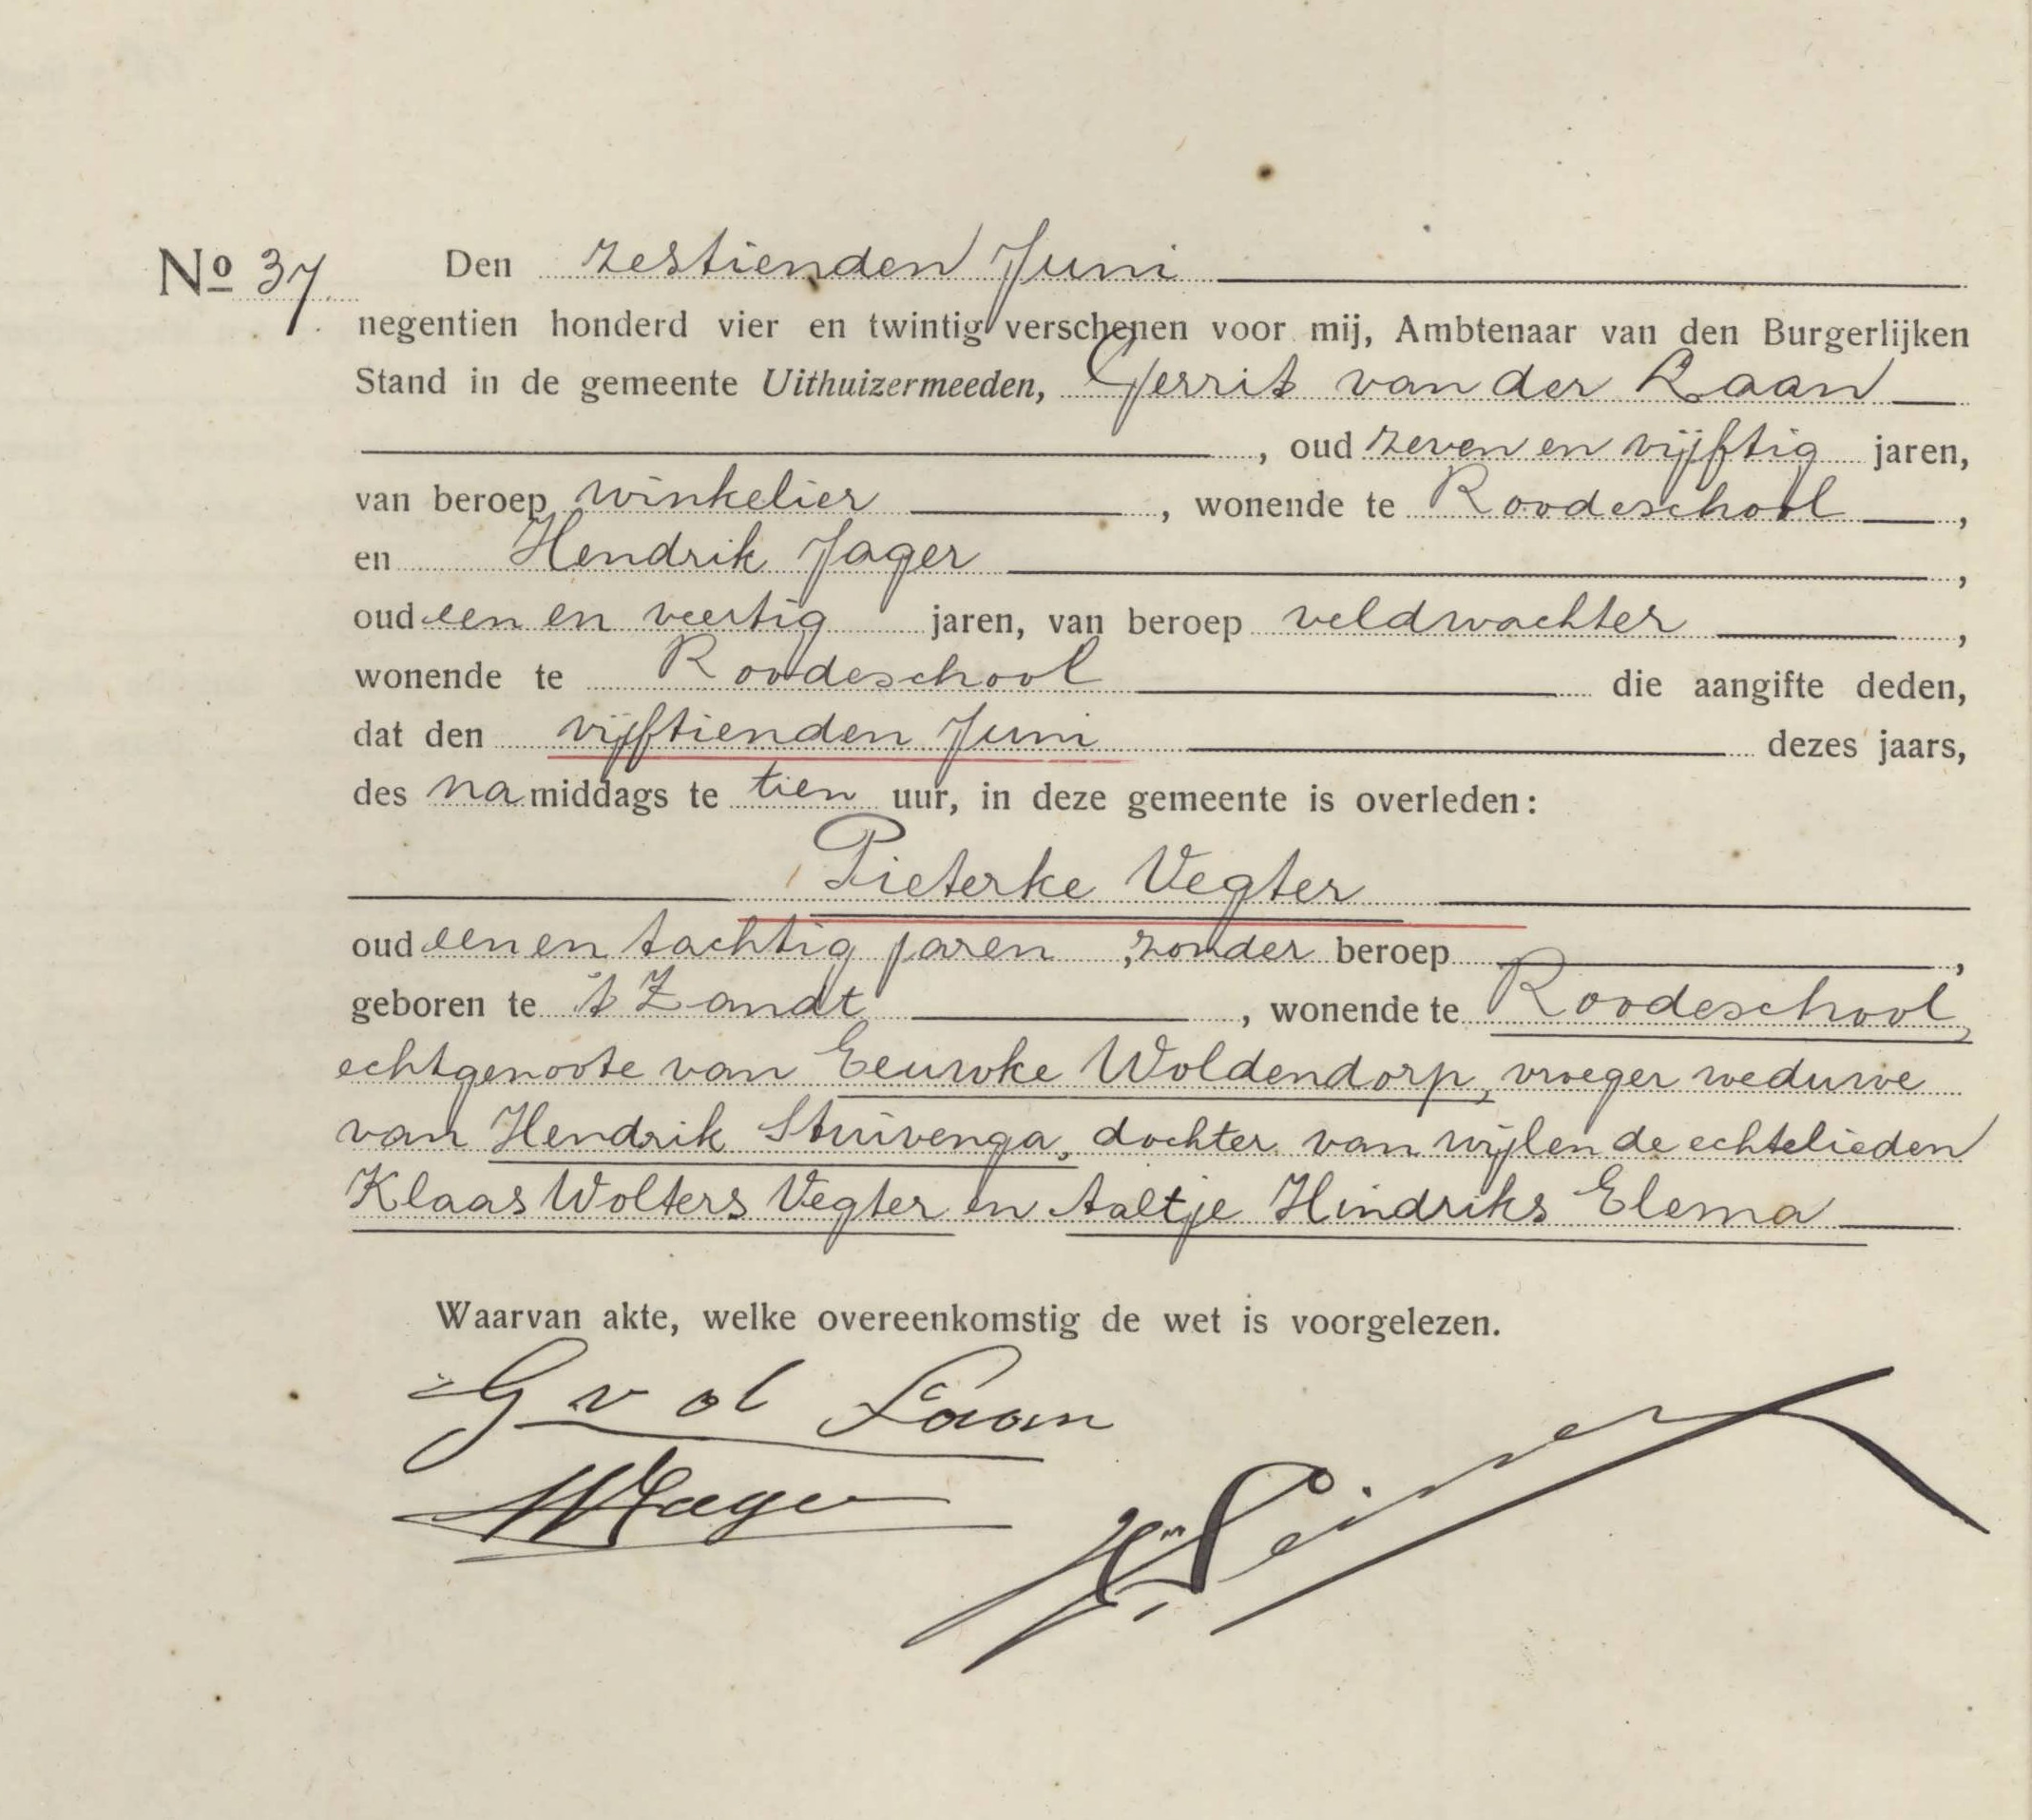 No 37. Den zestienden Juni
negentien honderd vier en twintig verschenen voor mij, Ambtenaar van den Burgerlijken
Stand in de gemeente Uithuizermeeden, Gerrit van der Laan
, oud zeven en vijftig jaren,
van beroep winkelier , wonende te Roodeschool ,
en Hendrik Jager ,
oud een en veertig jaren, van beroep veldwachter ,
wonende te Roodeschool die aangifte deden,
dat den vijftienden Juni dezes jaars,
des namiddags te tien uur, in deze gemeente is overleden:
Pieterke Vegter
oud een en tachtig jaren , zonder beroep ,
geboren te 't Zandt , wonende te Roodeschool,
echtgenoote van Eeuwke Woldendorp, vroeger weduwe
van Hendrik Stuivenga, dochter van wijlen de echtelieden
Klaas Wolters Vegter en Aaltje Hindriks Elema
Waarvan akte, welke overeenkomstig de wet is voorgelezen.
G v d Laan
H Jager